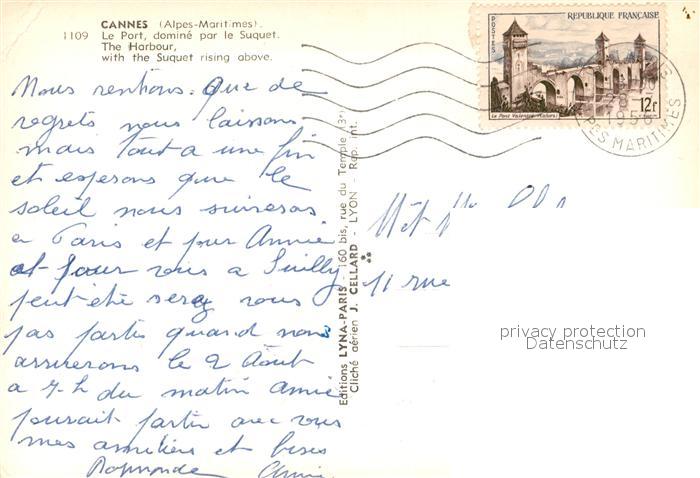 CANNES (Alpes-Maritimes).
1109 Le Port, dominé par le Suquet.
The Harbour,
with the Suquet rising above.
RÉPUBLIQUE FRANÇAISE
POSTES
12F
Le Pont Valentré (Cahors)
PES MARITIMES
Nous rentions. Que de
regrets nous laissons
mais tout a une fin
et esperons que le
soleil nous suiveras
a Paris et pour Annie
et pour vous a
peut été serez vous
pas partis quand nous
arriverons le 2 Août
a 7 h du matin Annie
pourait partir avec vous
mes amitiers et bises
Raymonde Annie
Editions LYNA-PARIS - 160 bis, rue du Temple (3e)
Cliché aérien J. CELLARD - LYON - Rép. int.
11 rue
privacy protection
Datenschutz